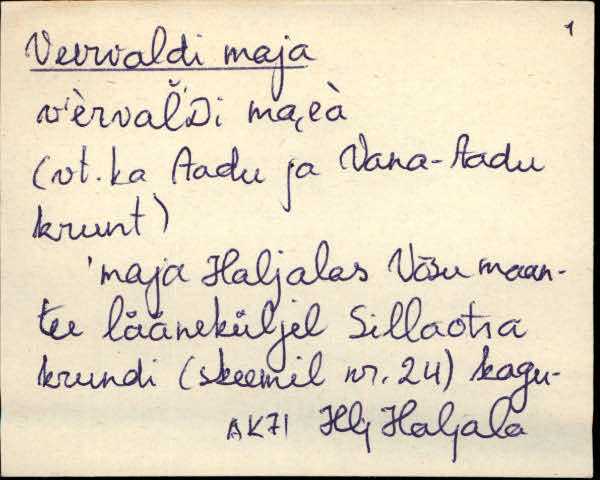 1
Veervaldi maja
v'èrvaľ̆Di ma͔eà
(vt. ka Aadu ja Vana-Aadu
krunt)
'maja Haljalas Võsu maan-
tee lääneküljel Sillaotsa
krundi (skeemil nr. 24) kagu-
AK71 Hlj Haljala